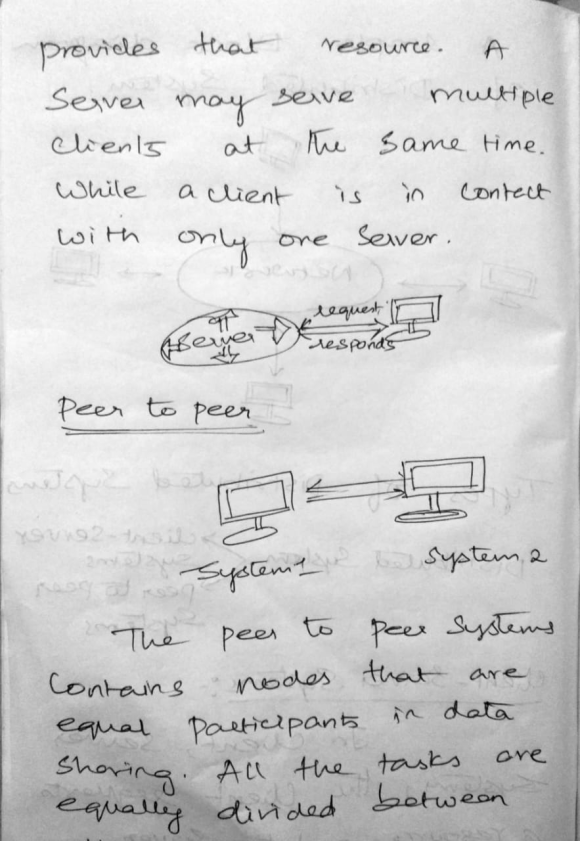 provides that resource. A
Server may serve multiple
clients at the same time.
While a client is in contact
with only one server.
request
Server
responds
Peer to peer
System 1
System 2
The peer to peer Systems
Contains nodes that are
equal participants in data
sharing. All the tasks are
equally divided between